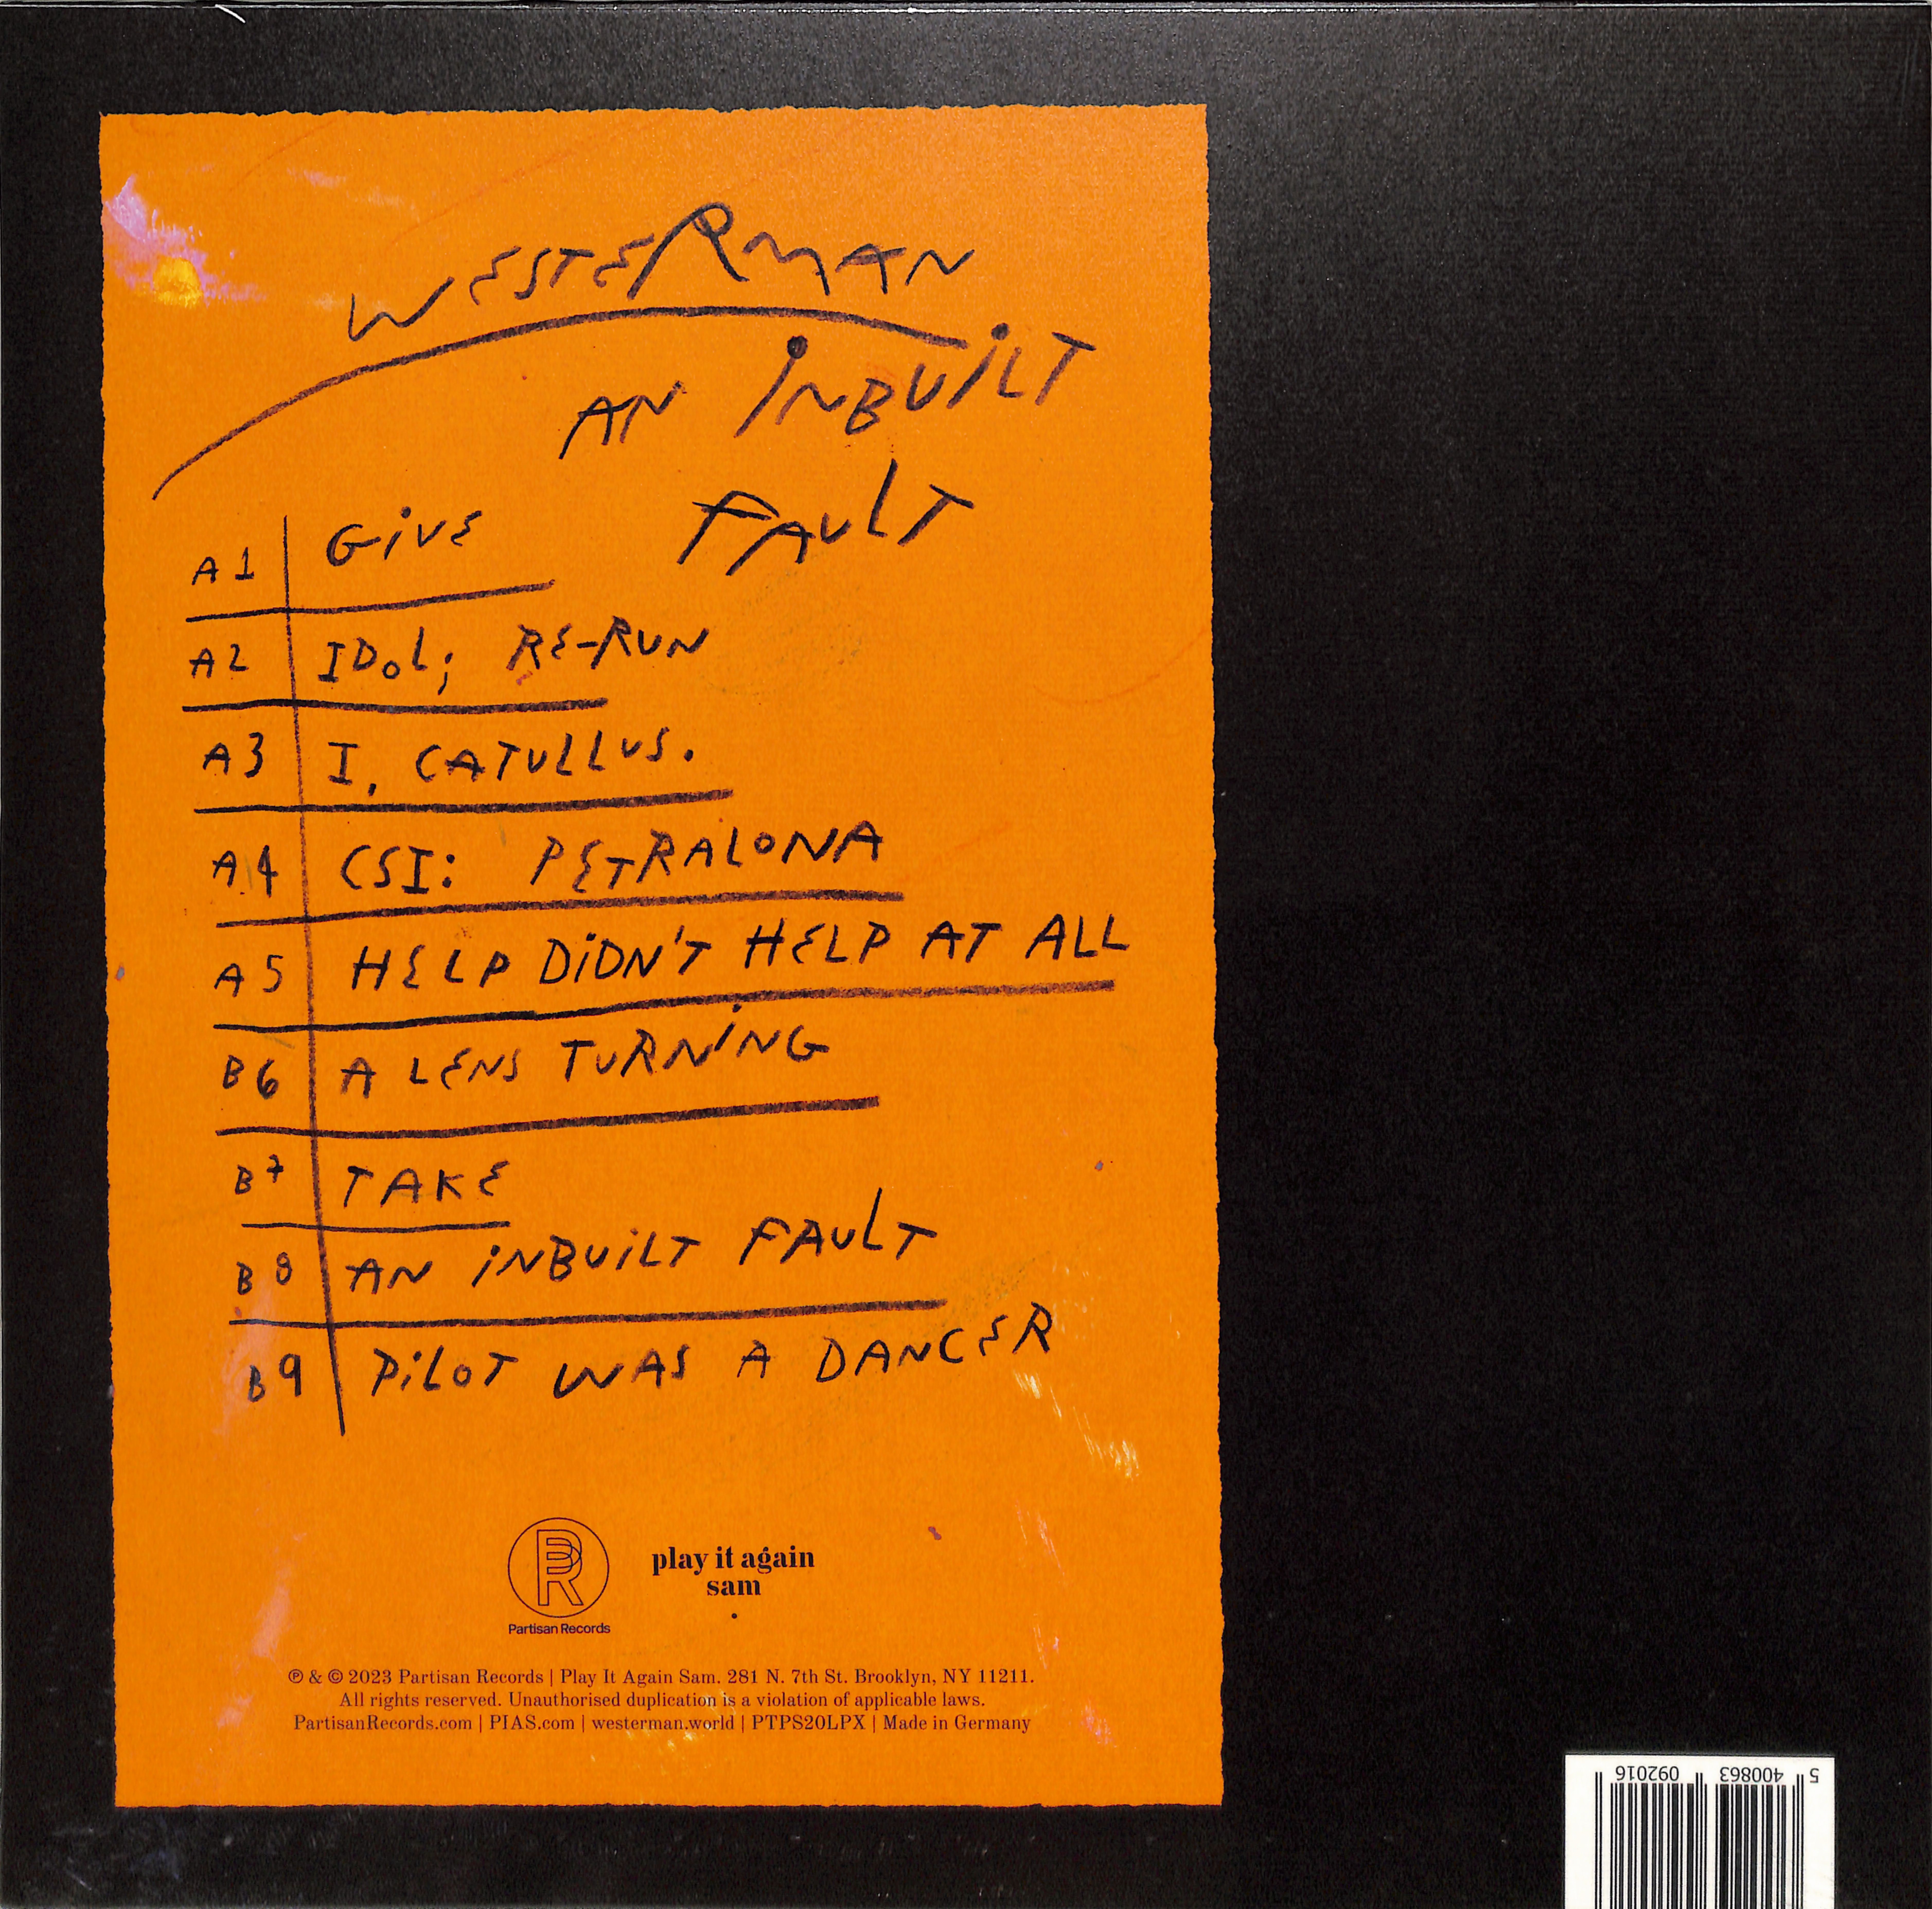 WESTERMAN
AN INBUILT
FAULT
A1 GIVE
A2 IDOL; RE-RUN
A3 I, CATULLUS.
A4 CSI: PETRALONA
A5 HELP DIDN'T HELP AT ALL
B6 A LENS TURNING
B7 TAKE
B8 AN INBUILT FAULT
B9 PILOT WAS A DANCER
PR
Partisan Records
play it again
sam
℗ & © 2023 Partisan Records | Play It Again Sam. 281 N. 7th St. Brooklyn, NY 11211.
All rights reserved. Unauthorised duplication is a violation of applicable laws.
PartisanRecords.com | PIAS.com | westerman.world | PTPS20LPX | Made in Germany
5 400863 092016